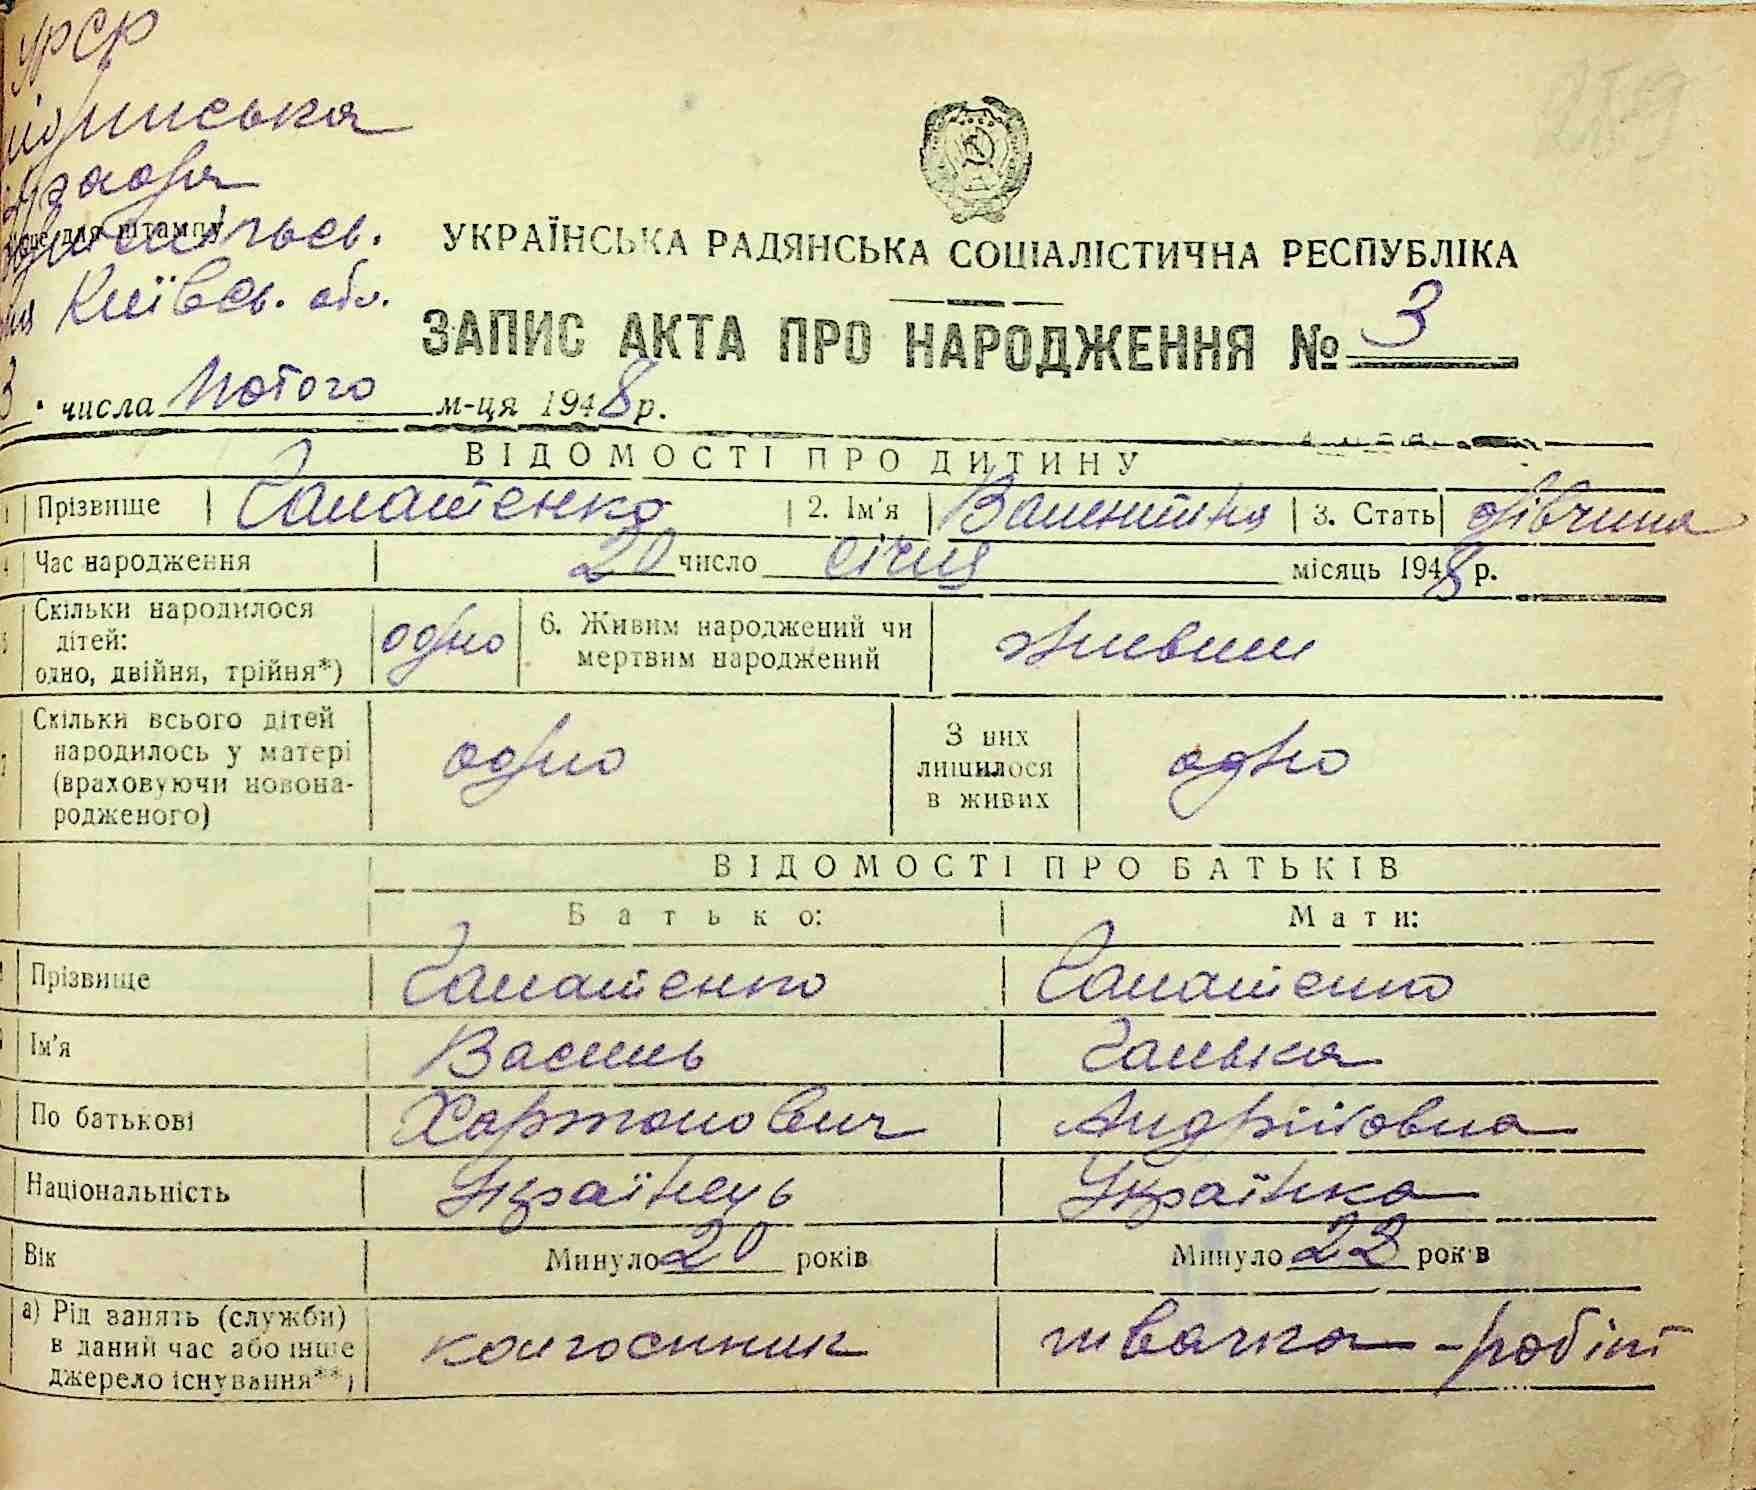 УРСР
сільрада
місце для штампу
Київсь. обл.
УКРАЇНСЬКА РАДЯНСЬКА СОЦІАЛІСТИЧНА РЕСПУБЛІКА
ЗАПИС АКТА ПРО НАРОДЖЕННЯ № 3
3 числа Лютого м-ця 1948 р.
ВІДОМОСТІ ПРО ДИТИНУ
1 Прізвище Галатенко 2. Ім'я Валентина 3. Стать дівчина
4 Час народження 20 число січня місяць 1948 р.
5 Скільки народилося дітей: одно, двійня, трійня*) одно 6. Живим народжений чи мертвим народжений живим
7 Скільки всього дітей народилось у матері (враховуючи новонародженого) одно З них лишилося в живих одно
ВІДОМОСТІ ПРО БАТЬКІВ
Батько: Мати:
Прізвище Галатенко Галатенко
Ім'я Василь Галька
По батькові Харитонович Андріївна
Національність Українець Українка
Вік Минуло 20 років Минуло 22 років
а) Рід занять (служби) в даний час або інше джерело існування**) колгоспник швачка - робіт